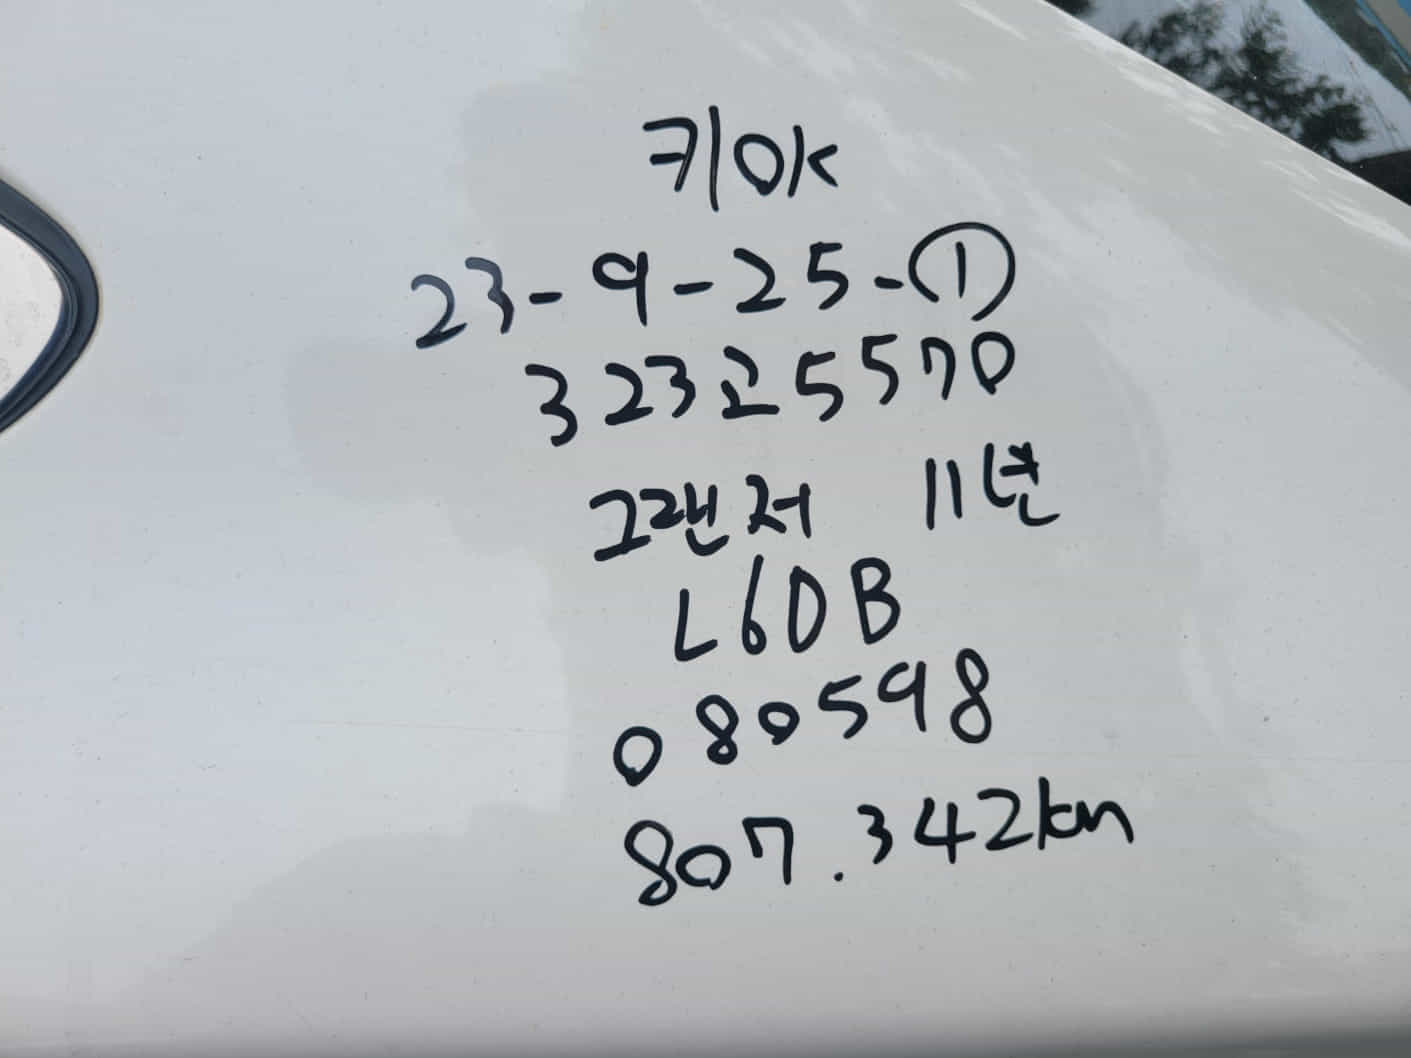 키OK
23-9-25-①
323고5570
그랜저 11년
L6DB
080598
807.342km